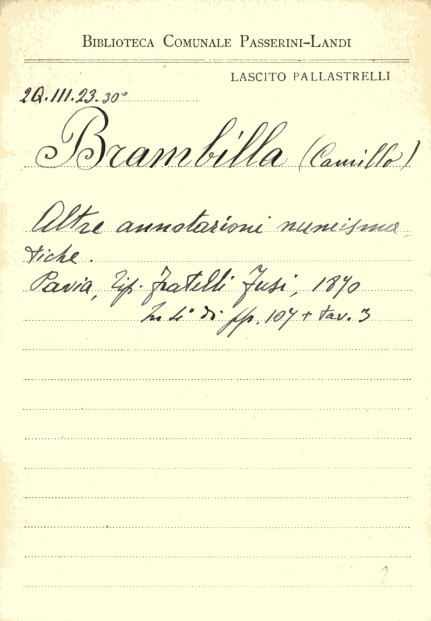 BIBLIOTECA COMUNALE PASSERINI-LANDI
LASCITO PALLASTRELLI
2Q.III.23.30°
Brambilla (Camillo)
Altre annotazioni numisma-
tiche.
Pavia, Tip. Fratelli Fusi, 1870
In 4° di pp. 107 + tav. 3